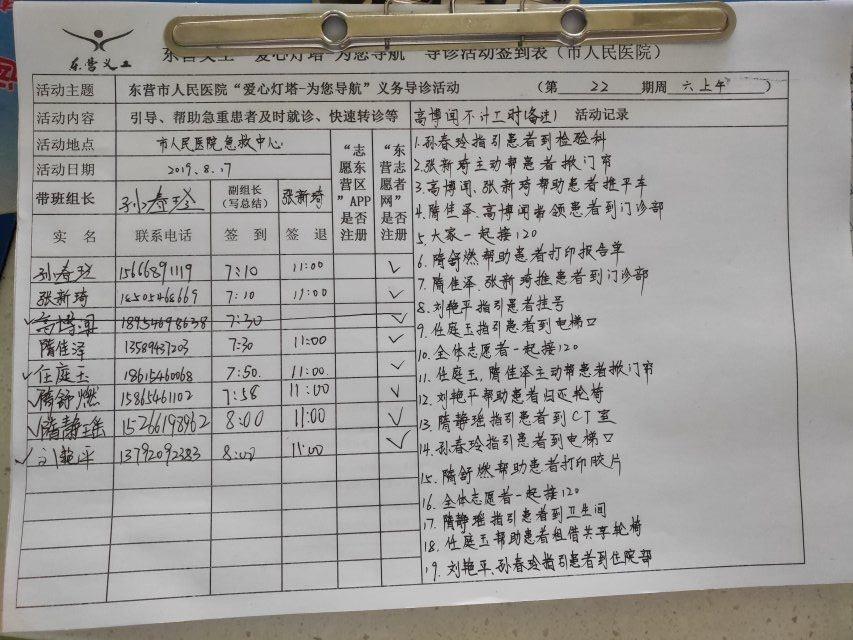 东营义工
东营义工“爱心灯塔-为您导航”导诊活动签到表（市人民医院）
活动主题 东营市人民医院“爱心灯塔-为您导航”义务导诊活动 （第 22 期周 六上午 ）
活动内容 引导、帮助急重患者及时就诊、快速转诊等 高博闻不计工时(备注) 活动记录
活动地点 市人民医院急救中心
活动日期 2019.8.17
带班组长 孙春玲 副组长（写总结） 张新琦
“志愿东营区”APP是否注册
“东营志愿者网”是否注册
实名 联系电话 签到 签退
孙春玲 15666891119 7:10 11:00 ✓
张新琦 18505468669 7:10 11:00 ✓
✓高博闻 18954698638 7:30 ✓
隋佳泽 13589437203 7:30 11:00 ✓
✓任庭玉 18615460068 7:50. 11:00. ✓
✓隋舒燃 15865461102 7:58 11:00 ✓
✓隋静瑶 15266198962 8:00 11:00 ✓
✓刘艳平 13792092383 8:00 11:00 ✓
1.孙春玲指引患者到检验科
2.张新琦主动帮患者掀门帘
3.高博闻、张新琦帮助患者推平车
4.隋佳泽、高博闻带领患者到门诊部
5.大家一起接120
6.隋舒燃帮助患者打印报告单
7.隋佳泽、张新琦推患者到门诊部
8.刘艳平指引患者挂号
9.任庭玉指引患者到电梯口
10.全体志愿者一起接120
11.任庭玉,隋佳泽主动帮患者掀门帘
12.刘艳平帮助患者归还轮椅
13.隋静瑶指引患者到CT室
14.孙春玲指引患者到电梯口
15.隋舒燃帮助患者打印胶片
16.全体志愿者一起接120
17.隋静瑶指引患者到卫生间
18.任庭玉帮助患者租借共享轮椅
19.刘艳平、孙春玲指引患者到住院部